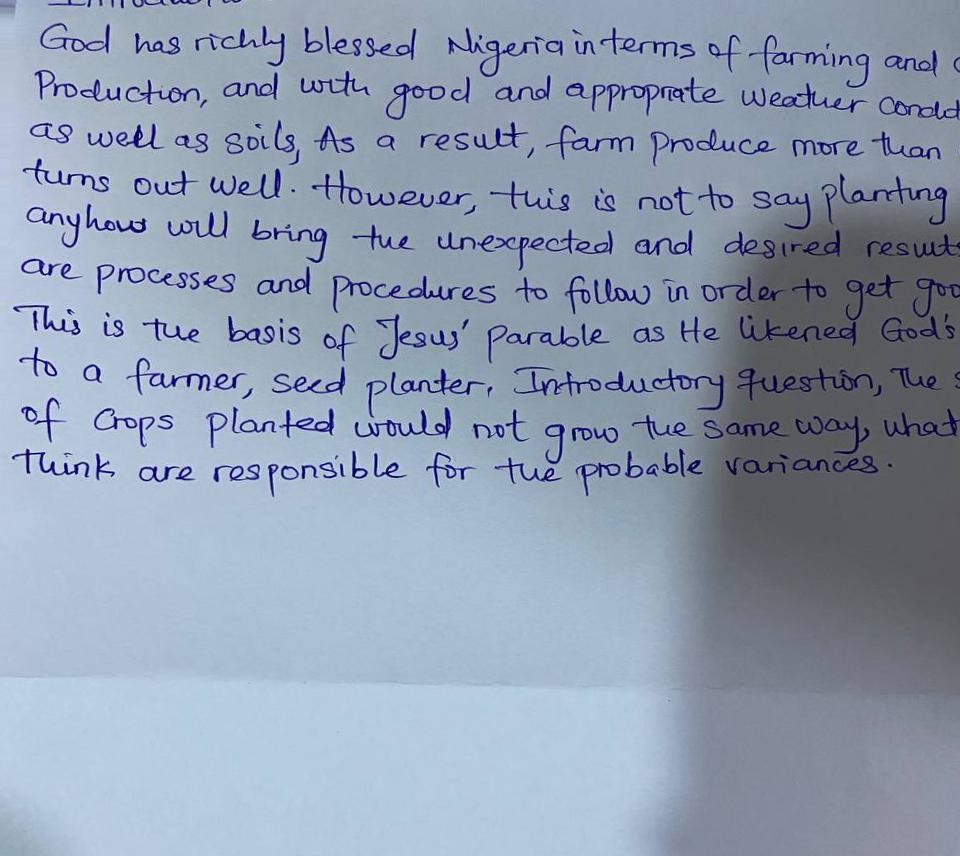 God has richly blessed Nigeria in terms of farming and
Production, and with good and appropriate weather
as well as soils, As a result, farm produce more than
turns out well. However, this is not to say planting
anyhow will bring the unexpected and desired
are processes and procedures to follow in order to get
This is the basis of Jesus' parable as He likened God's
to a farmer, seed planter. Introductory question, The
of crops planted would not grow the same way, what
think are responsible for the probable variances.